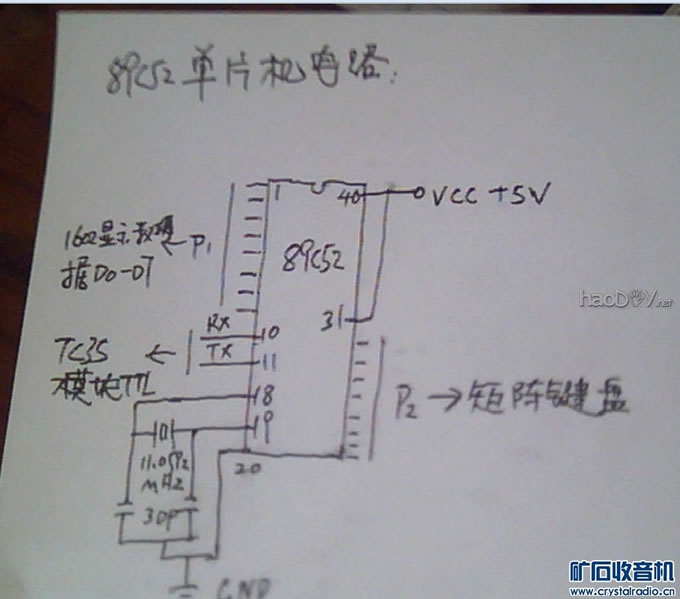 89C52单片机电路:
1
40
VCC +5V
1602显示数
据D0-D7
← P1
89C52
31
RX
10
TX
11
TC35
←
模块TTL
18
19
P2 → 矩阵键盘
20
11.0592
MHZ
30P
GND
haoDIY.net
矿石收音机
www.crystalradio.cn